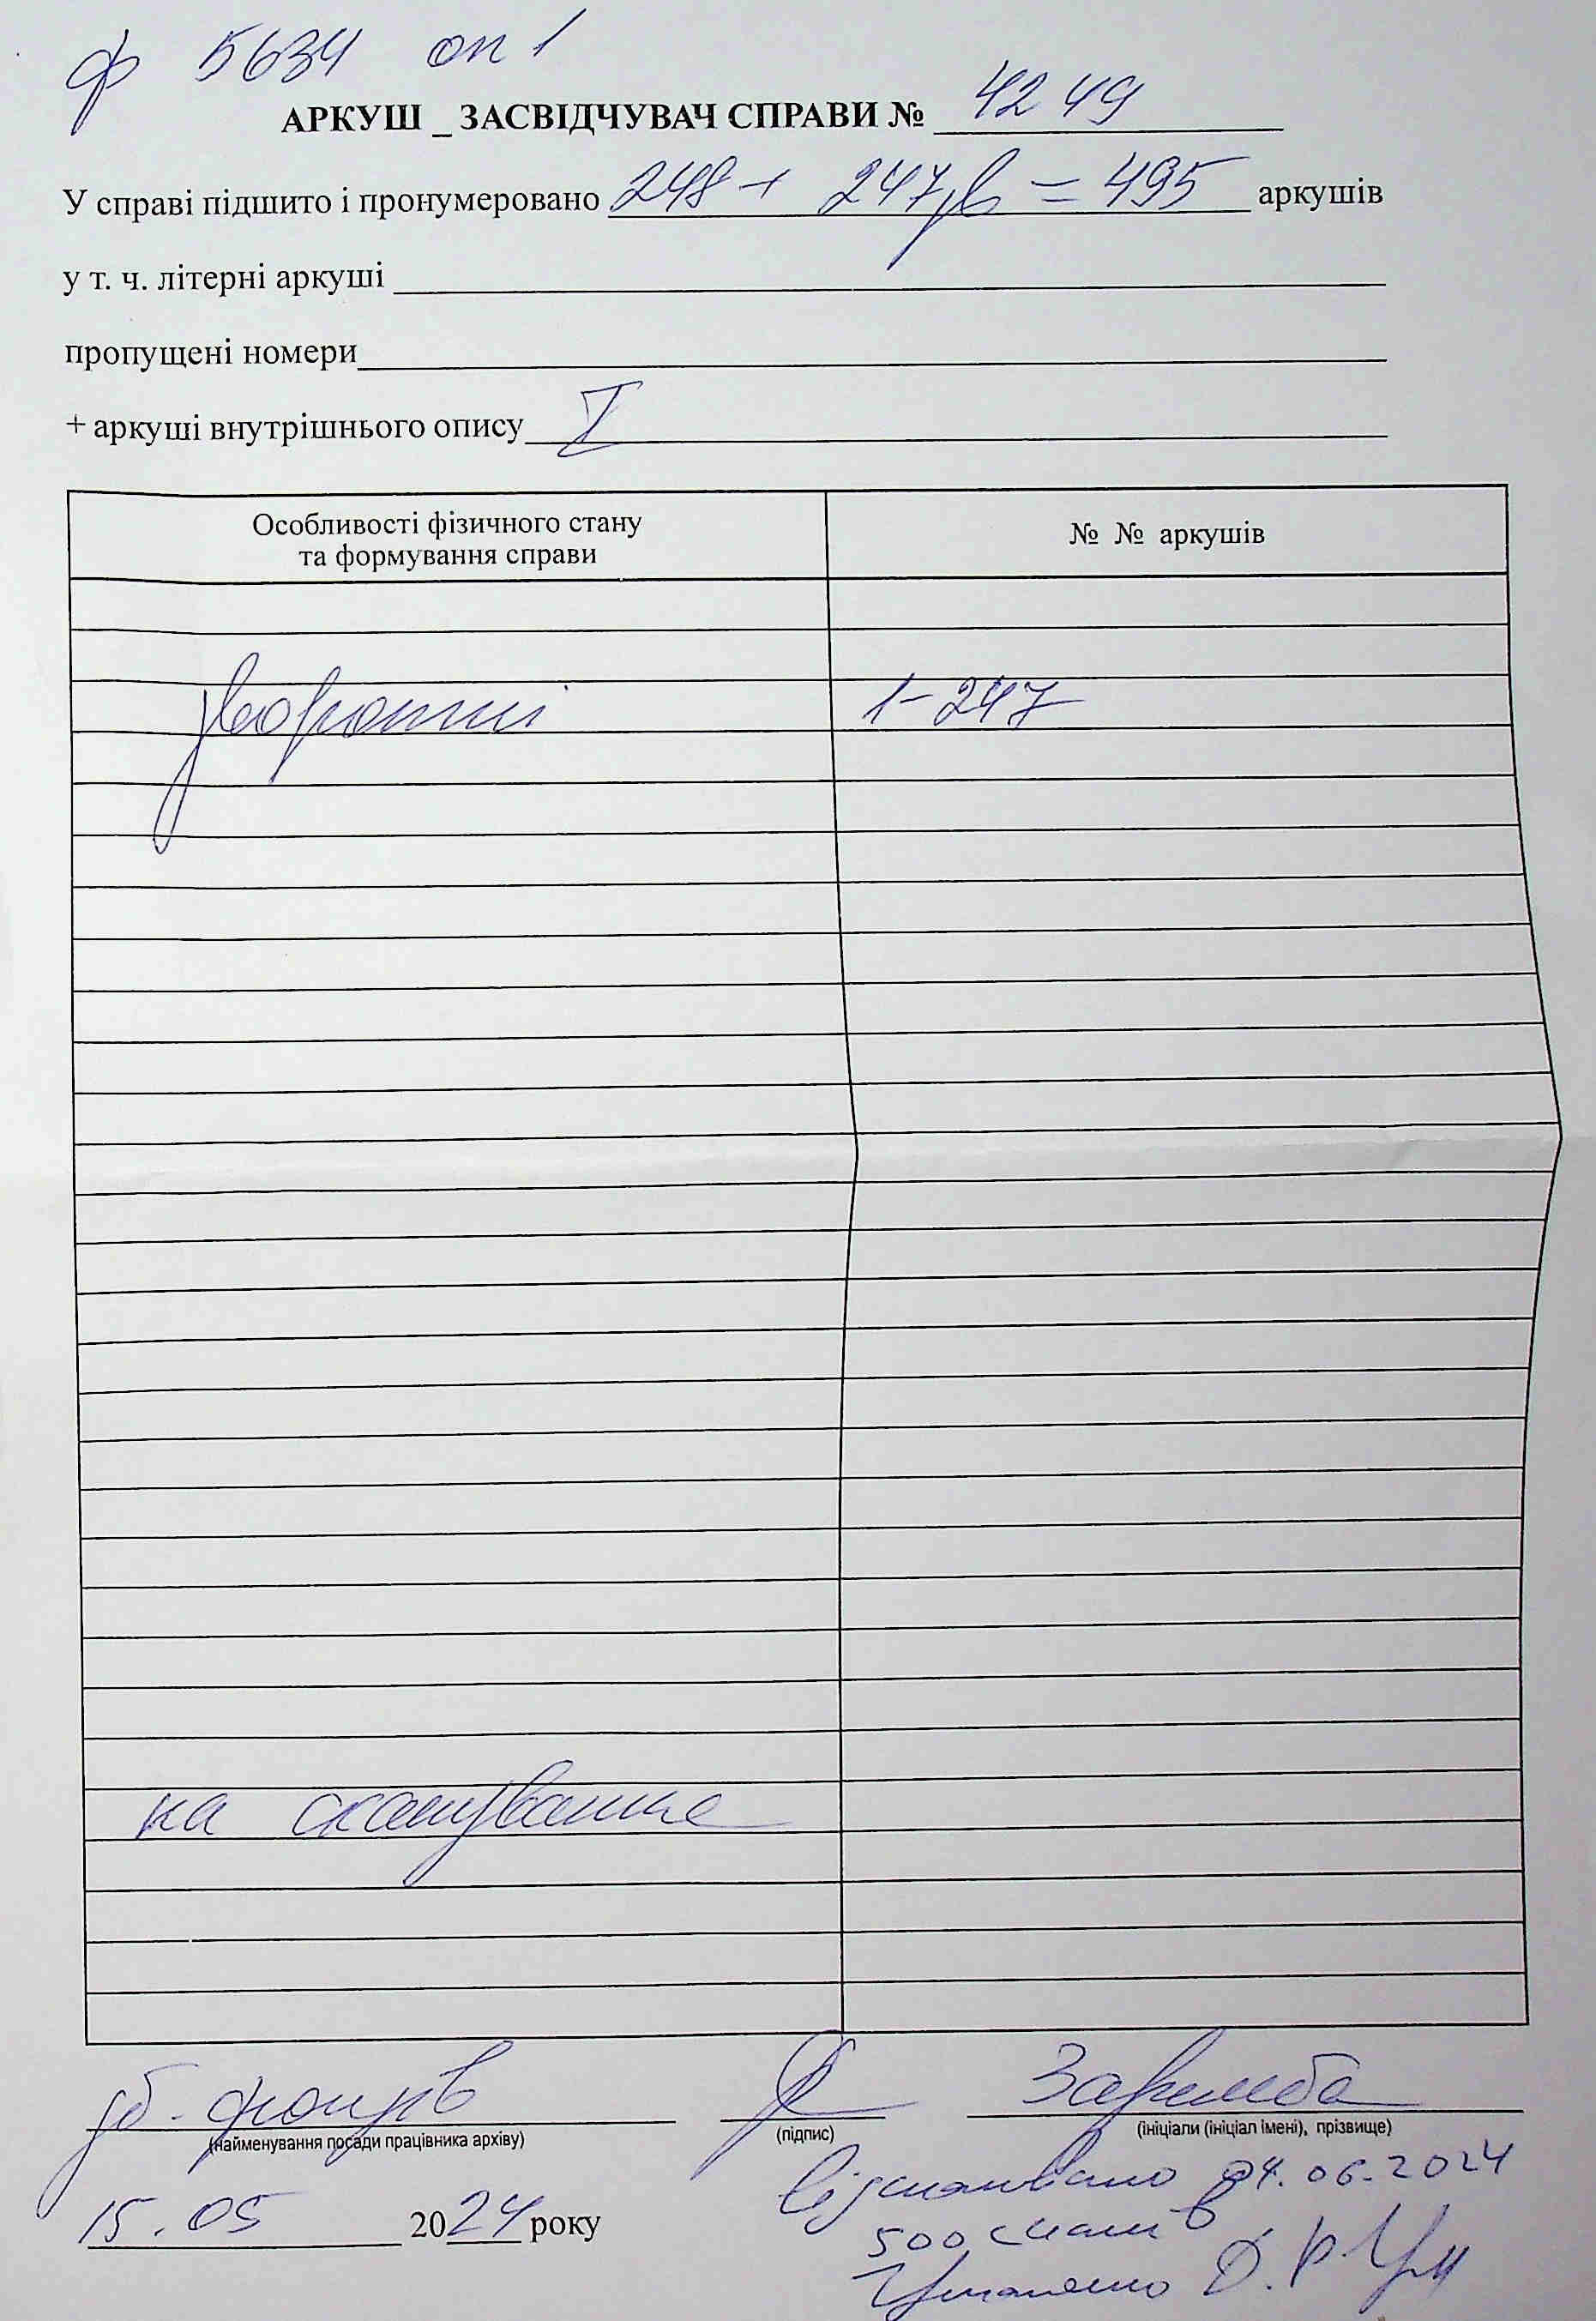 ф 5634 оп 1
АРКУШ _ ЗАСВІДЧУВАЧ СПРАВИ № 4249
У справі підшито і пронумеровано 248 + 247зв = 495 аркушів
у т. ч. літерні аркуші
пропущені номери
+ аркуші внутрішнього опису I
Особливості фізичного стану
та формування справи
№ № аркушів
зворотні 1-247
на сканування
зб. фондів Заремба
(найменування посади працівника архіву) (підпис) (ініціали (ініціал імені), прізвище)
Відскановано 04.06.2024
15.05 2024 року
500 сканів